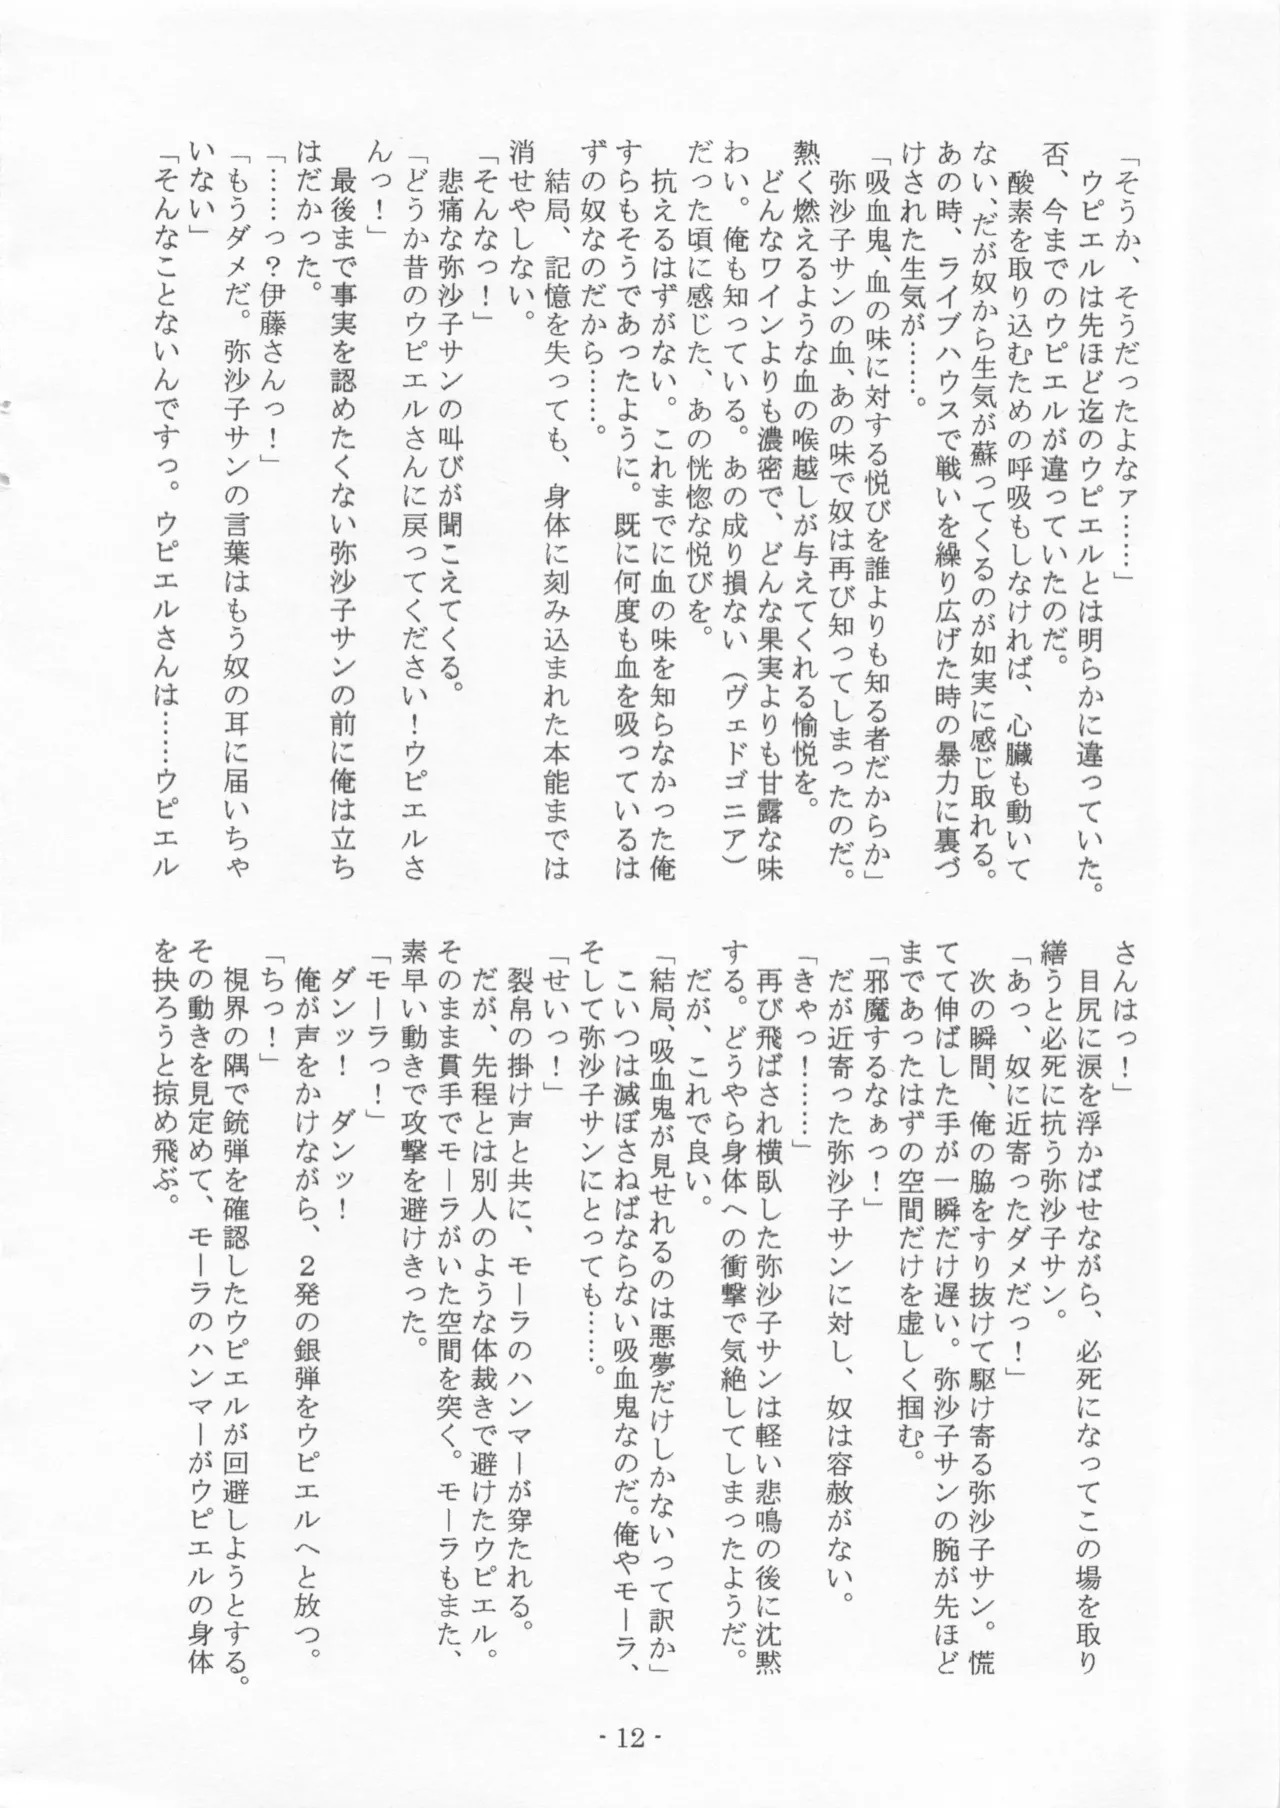 「そうか、そうだったよなァ……」
　ウピエルは先ほど迄のウピエルとは明らかに違っていた。
否、今までのウピエルが違っていたのだ。
　酸素を取り込むための呼吸もしなければ、心臓も動いて
ない、だが奴から生気が蘇ってくるのが如実に感じ取れる。
あの時、ライブハウスで戦いを繰り広げた時の暴力に裏づ
けされた生気が……。
「吸血鬼、血の味に対する悦びを誰よりも知る者だからか」
　弥沙子サンの血、あの味で奴は再び知ってしまったのだ。
熱く燃えるような血の喉越しが与えてくれる愉悦を。
　どんなワインよりも濃密で、どんな果実よりも甘露な味
わい。俺も知っている。あの成り損ない（ヴェドゴニア）
だった頃に感じた、あの恍惚な悦びを。
　抗えるはずがない。これまでに血の味を知らなかった俺
すらもそうであったように。既に何度も血を吸っているは
ずの奴なのだから……。
　結局、記憶を失っても、身体に刻み込まれた本能までは
消せやしない。
「そんなっ！」
　悲痛な弥沙子サンの叫びが聞こえてくる。
「どうか昔のウピエルさんに戻ってください！ウピエルさ
んっ！」
　最後まで事実を認めたくない弥沙子サンの前に俺は立ち
はだかった。
「……っ？伊藤さんっ！」
「もうダメだ。弥沙子サンの言葉はもう奴の耳に届いちゃ
いない」
「そんなことないんですっ。ウピエルさんは……ウピエル
さんはっ！」
　目尻に涙を浮かばせながら、必死になってこの場を取り
繕うと必死に抗う弥沙子サン。
「あっ、奴に近寄ったダメだっ！」
　次の瞬間、俺の脇をすり抜けて駆け寄る弥沙子サン。慌
てて伸ばした手が一瞬だけ遅い。弥沙子サンの腕が先ほど
まであったはずの空間だけを虚しく掴む。
「邪魔するなぁっ！」
　だが近寄った弥沙子サンに対し、奴は容赦がない。
「きゃっ！……」
　再び飛ばされ横臥した弥沙子サンは軽い悲鳴の後に沈黙
する。どうやら身体への衝撃で気絶してしまったようだ。
　だが、これで良い。
「結局、吸血鬼が見せれるのは悪夢だけしかないって訳か」
　こいつは滅ぼさねばならない吸血鬼なのだ。俺やモーラ、
そして弥沙子サンにとっても……。
「せいっ！」
　裂帛の掛け声と共に、モーラのハンマーが穿たれる。
　だが、先程とは別人のような体裁きで避けたウピエル。
そのまま貫手でモーラがいた空間を突く。モーラもまた、
素早い動きで攻撃を避けきった。
「モーラっ！」
　ダンッ！　ダンッ！
　俺が声をかけながら、２発の銀弾をウピエルへと放つ。
「ちっ！」
　視界の隅で銃弾を確認したウピエルが回避しようとする。
その動きを見定めて、モーラのハンマーがウピエルの身体
を抉ろうと掠め飛ぶ。
- 12 -